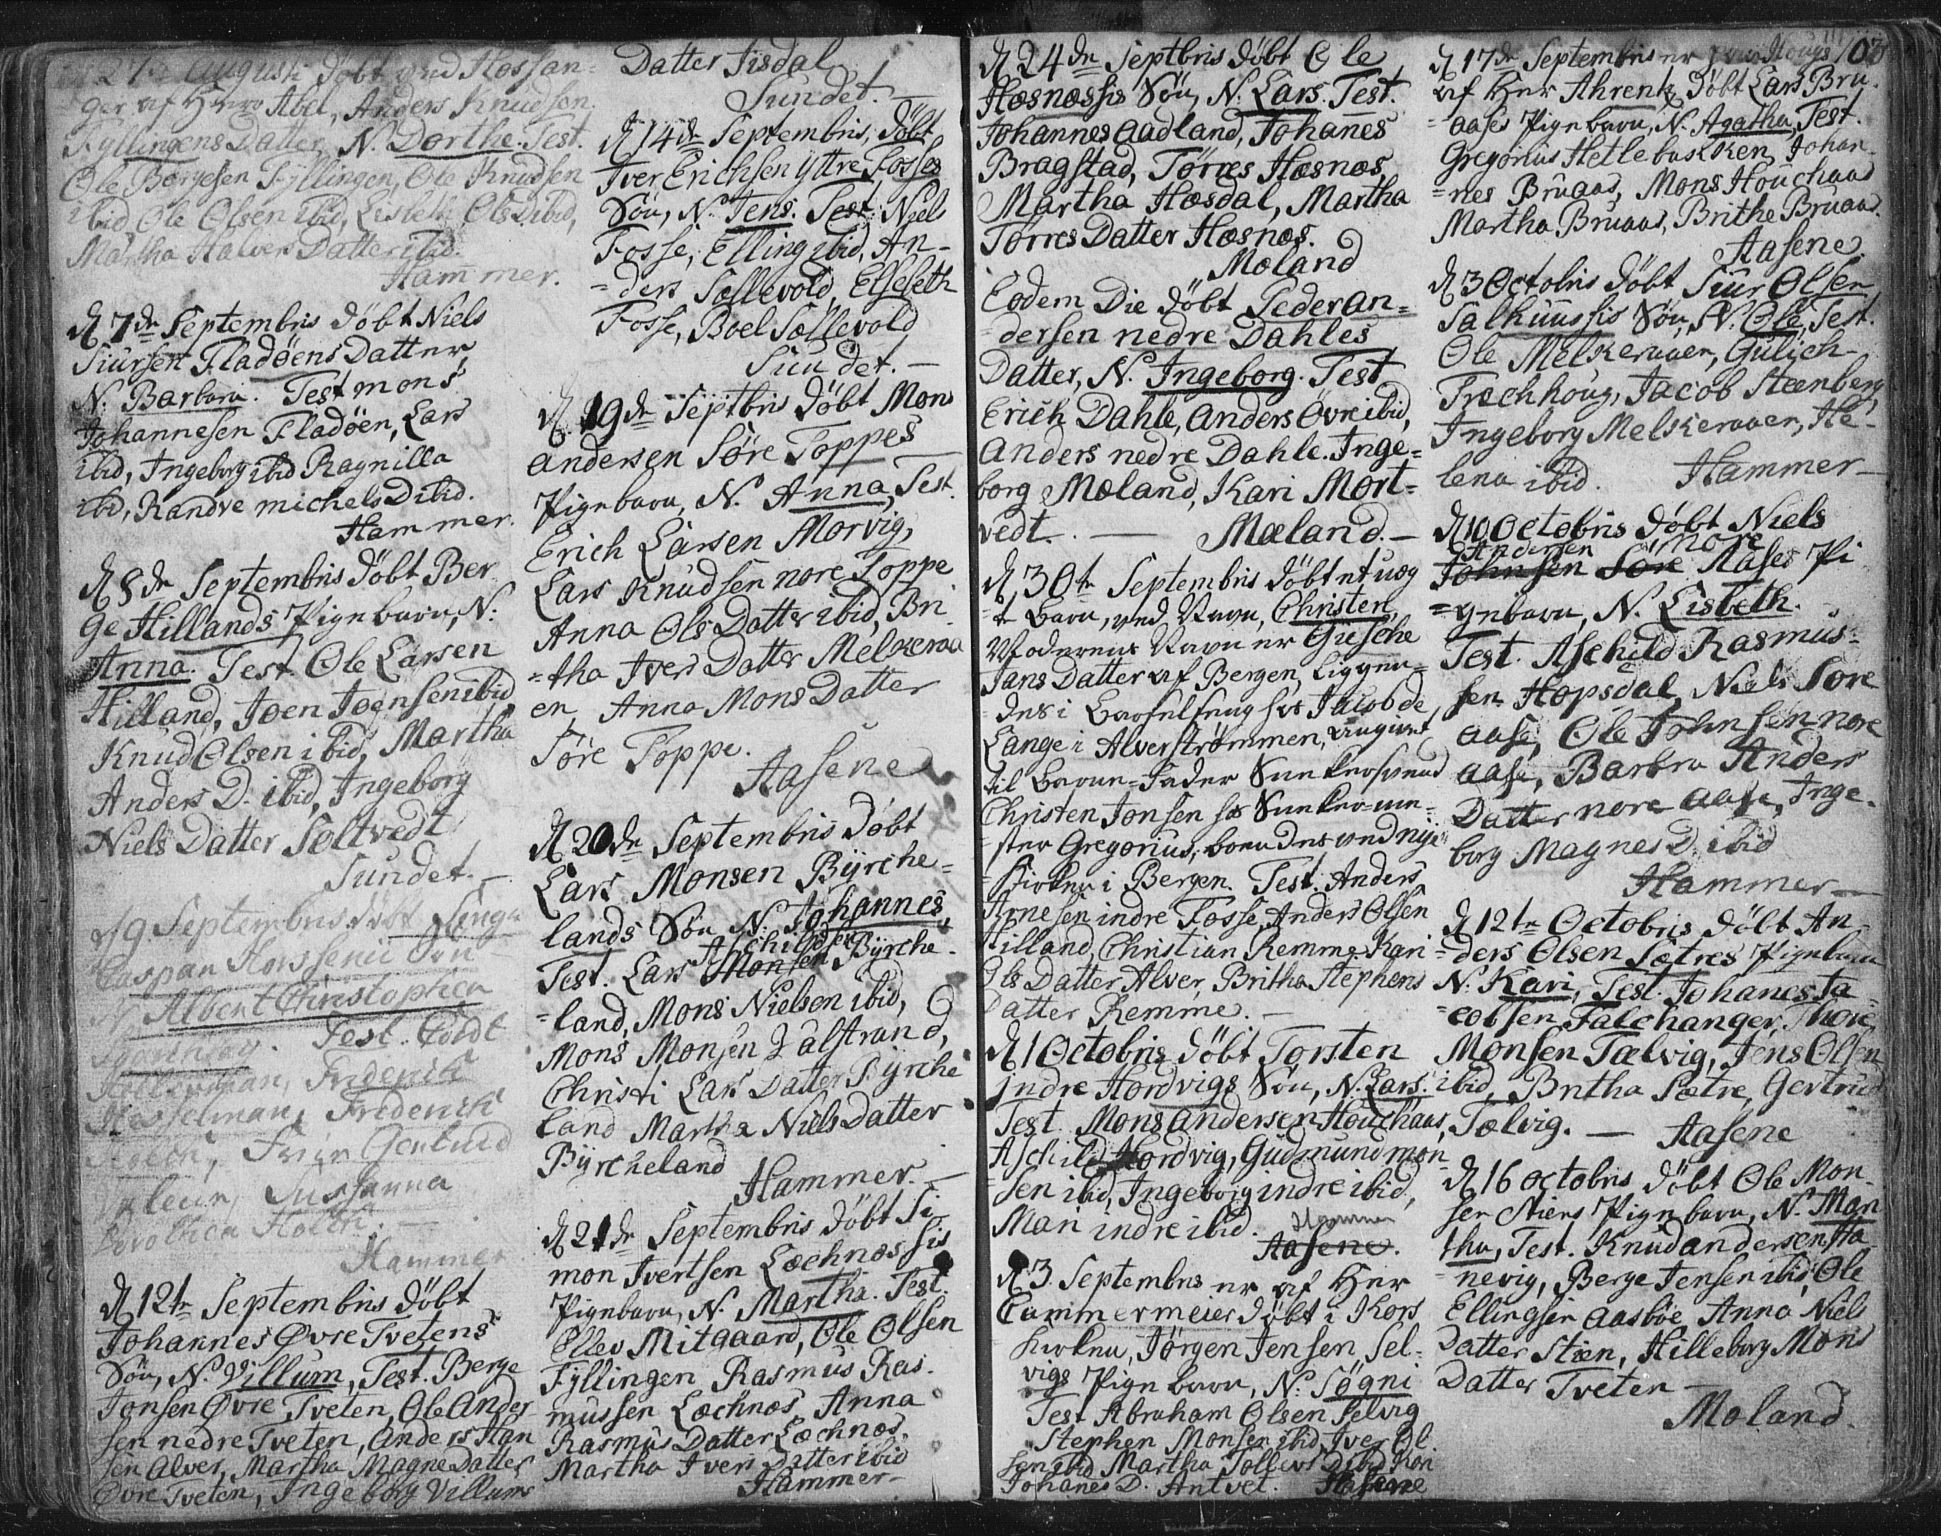 27 Augusti døbt ved Hossan-
ger af Herr Abel, Anders Knudsen
Fyllingens Datter N. Dorthe. Test.
Ole Børgesen Fyllingen, Ole Knudsen
ibid, Ole Olsen ibid, Lisbeth Ols D ibid,
Martha Halvers Datter ibid.
Hammer.
d 7de Septembris døbt Niels
Siursen Fladøens Datter
N. Barbara. Test mons
Johannesen Fladøen, Lars
ibid, Ingeborg ibid Ragnilla
ibid, Randve michels D ibid.
Hammer.
d 8de Septembris døbt Ber
ge Hillands Pigebarn, N.
Anna. Test Ole Larsen
Hilland, Joen Joensen ibid
Knud Olsen ibid, Martha
Anders D. ibid, Ingeborg
Niels Datter Sæltvedt
Sundet.
d 9 Septembris døbt
Caspar
N Albert Christopher
Test.
Hesselman, Frederik
Susanna
Hammer
d 12te Septembris døbt
Johannes Øvre Tvetens
Søn, N. Villum, Test. Berge
Jonsen Øvre Tveten, Ole Ander
sen nedre Tveten, Anders Han
sen Alver, Martha Magne Datter
Øvre Tveten, Ingeborg Villums
Datter Iisdal
Sundet.
d 14de Septembris, døbt
Iver Erichsen Yttre Fosses
Søn, N. Jens. Test, Niel
Fosse, Elling ibid, An-
ders Sællevold, Elsebeth
Fosse, Boel Sællevold
Sundet.
d 19de Septbris døbt Mons
Andersen Søre Toppes
Pigebarn, N. Anna, Test.
Erich Larsen Morvig,
Lars Knudsen nore Toppe
Anna Ols Datter ibid, Bri
tha Ivers Datter Melkeraa
en, Anna Mons Datter
Søre Toppe.
Aasene
d 20de Septembris døbt
Lars Monsen Byrche-
lands Søn N. Johannes,
Aschildsen
Test. Lars Monsen Byrche-
land, Mons Nielsen ibid,
Mons Monsen Jalstrand,
Christi Lars Datter Byrche
land Martha Niels Datter
Byrcheland
Hammer.
d 21de Septembris døbt Si
mon Ivertsen Læchnæssis
Pigebarn, N. Martha. Test.
Ellev Mitgaard, Ole Olsen
Fyllingen, Rasmus Ras-
mussen Læchnæs Anna
Rasmus Datter Læchnæs.
Martha Ivers Datter ibid
Hammer
d 24de Septbris døbt Ole
Hæsnæssis Søn, N. Lars. Test.
Johannes Aadland, Johanes
Bragstad, Tørres Hæsnæs
Martha Hæsdal, Martha
Tørres Datter Hæsnæs.
Mæland
Eodem Die døbt Peder An-
dersen nedre Dahles
Datter, N. Ingeborg. Test
Erich Dahle, Anders Øvre ibid,
Anders nedre Dahle. Inge-
borg Mæland, Kari Mort-
vedt.
Mæland.
d 30te Septembris døbt et uæg
te barn, ved Navn, Christen,
Moderens Navn er Giesche
Jans Datter af Bergen, liggen-
des i Barselseng hos Jacob de
Lange i Alverstrømmen, angivet
til Barne-Fader Snekersvend
Christen Jonsen hos Snekerme-
ster Gregorius, boendes ved nye
Kirken i Bergen. Test. Anders
Arnesen indre Fosse, Anders Olsen
Hilland, Christian Remme, Kari
Ols Datter Alver, Britha Stephens
Datter Remme.
d 1 Octobris døbt Torsten
Indre Hordvigs Søn, N. Lars.
Test. Mons Andersen Houchaas,
Aschild Hordvig, Gudmund mon
sen ibid, Ingeborg indre ibid,
Mari indre ibid.
Hammer
Aasene.
d 3 Septembris er af Herr
Cammermeier døbt i Kors
Kirken, Jørgen Jensen Sel-
vigs Pigebarn, N. Søgni
Test Abraham Olsen Selvig
Stephen Monsen ibid, Iver Ol
sen ibid Martha Tollevs D ibid Kari
Johanes D. Antvet. Aasene
103
d 17de Septembris er
af Herr Ahrentz, døbt Lars Bru-
aases Pigebarn, N. Agatha, Test.
Gregorius Hetlebakken, Johan-
nes Bruaas, Mons Houchaas
Martha Bruaas, Brithe Bruaas.
Aasene
d 3 Octobris døbt Siur Olsen
Salhuussis Søn, N. Ole, Test.
Ole Melkeraaen, Gulich
Træchhoug, Jacob Steenberg,
Ingeborg Melkeraaen, He-
lena ibid. Hammer
d 10 Octobris døbt Niels
Andersen nore
Johnsen Søre Aases Pi
gebarn, N. Lisbeth.
Test. Aschild Rasmus-
sen Hopsdal, Niels Søre
Aase, Ole Johnsen nore
Aase, Barbra Anders
Datter nore Aase, Inge-
borg Magnes D. ibid
Hammer
d 12te Octobris døbt An-
ders Olsen Sætres Pigebarn
N. Kari, Test. Johanes Ja-
cobsen Falchanger, Thore
Monsen Tælvig, Jens Olsen
ibid, Britha Sætre, Gertrud
Tælvig.
Aasene
d 16 octobris døbt Ole Mon-
sen Stiens Pigebarn, N. Mar
tha, Test. Knud Andersen Ha-
nevig, Berge Jensen ibid, Ole
Ellingsen Aasbøe, Anna Niels
Datter Stien, Hilleborg Mons
Datter Tveten
Mæland.